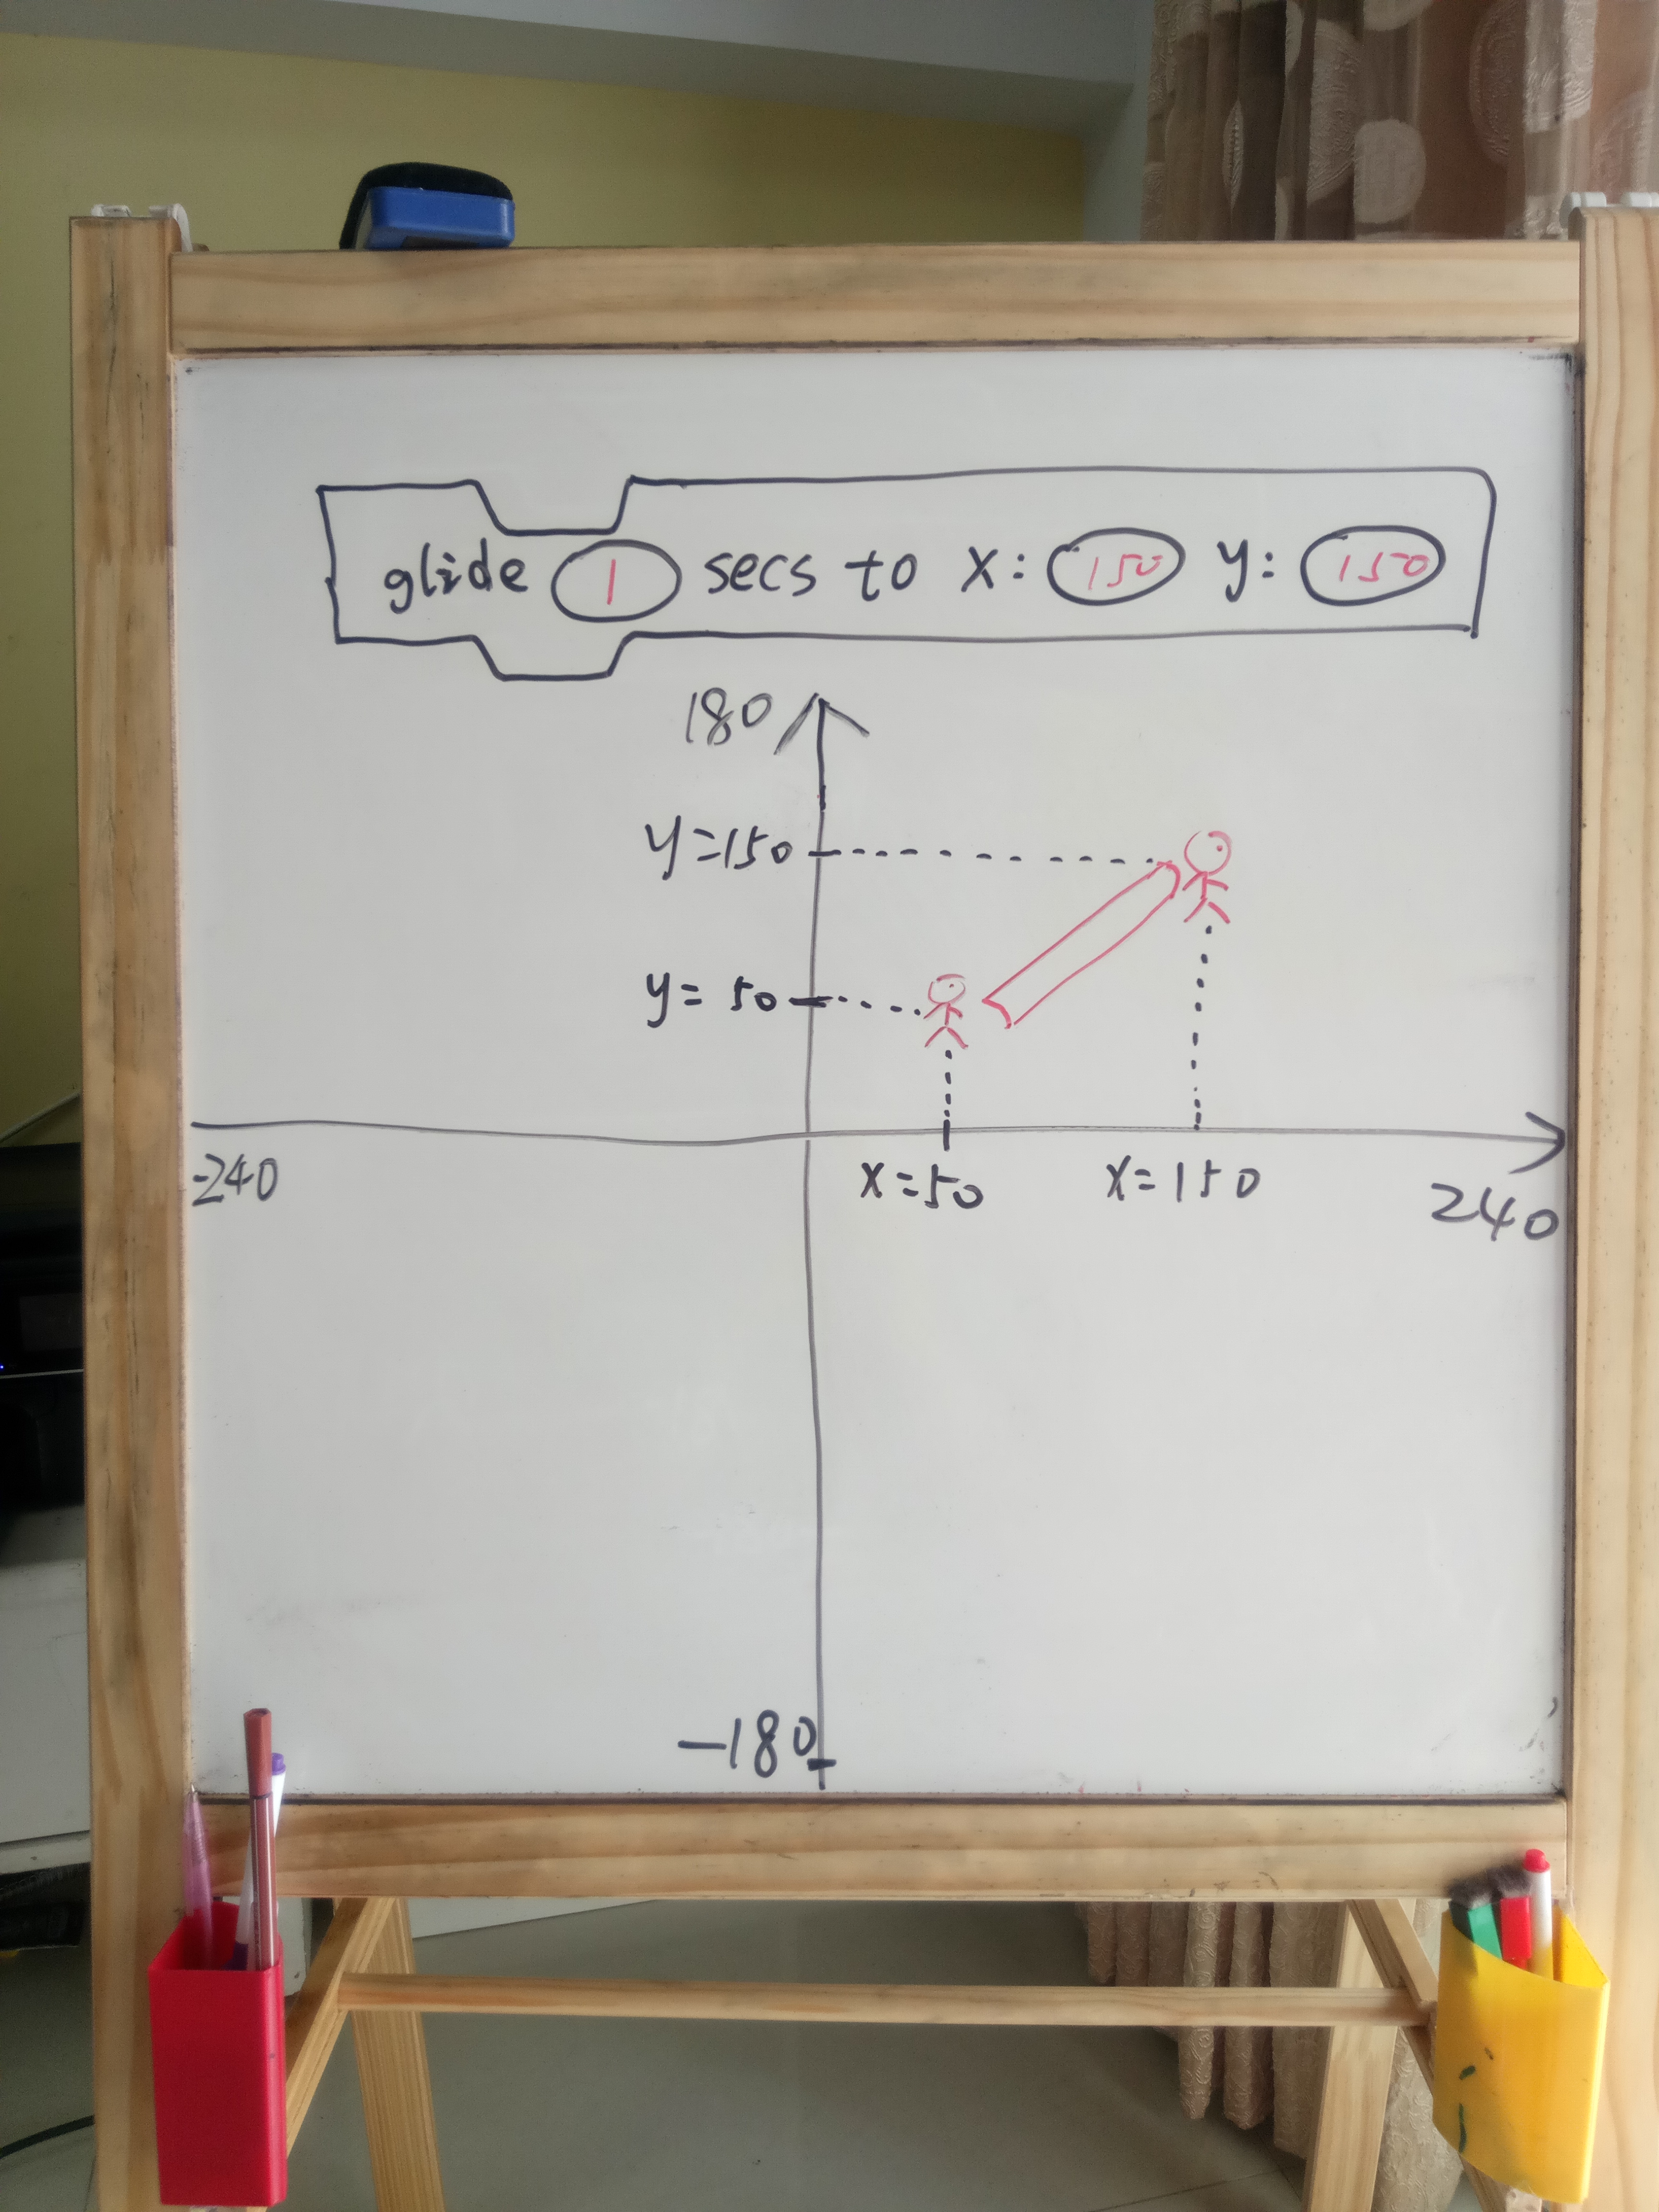 glide 1 secs to x: 150 y: 150
180
y=150
y= 50
-240
x=50
x=150
240
-180